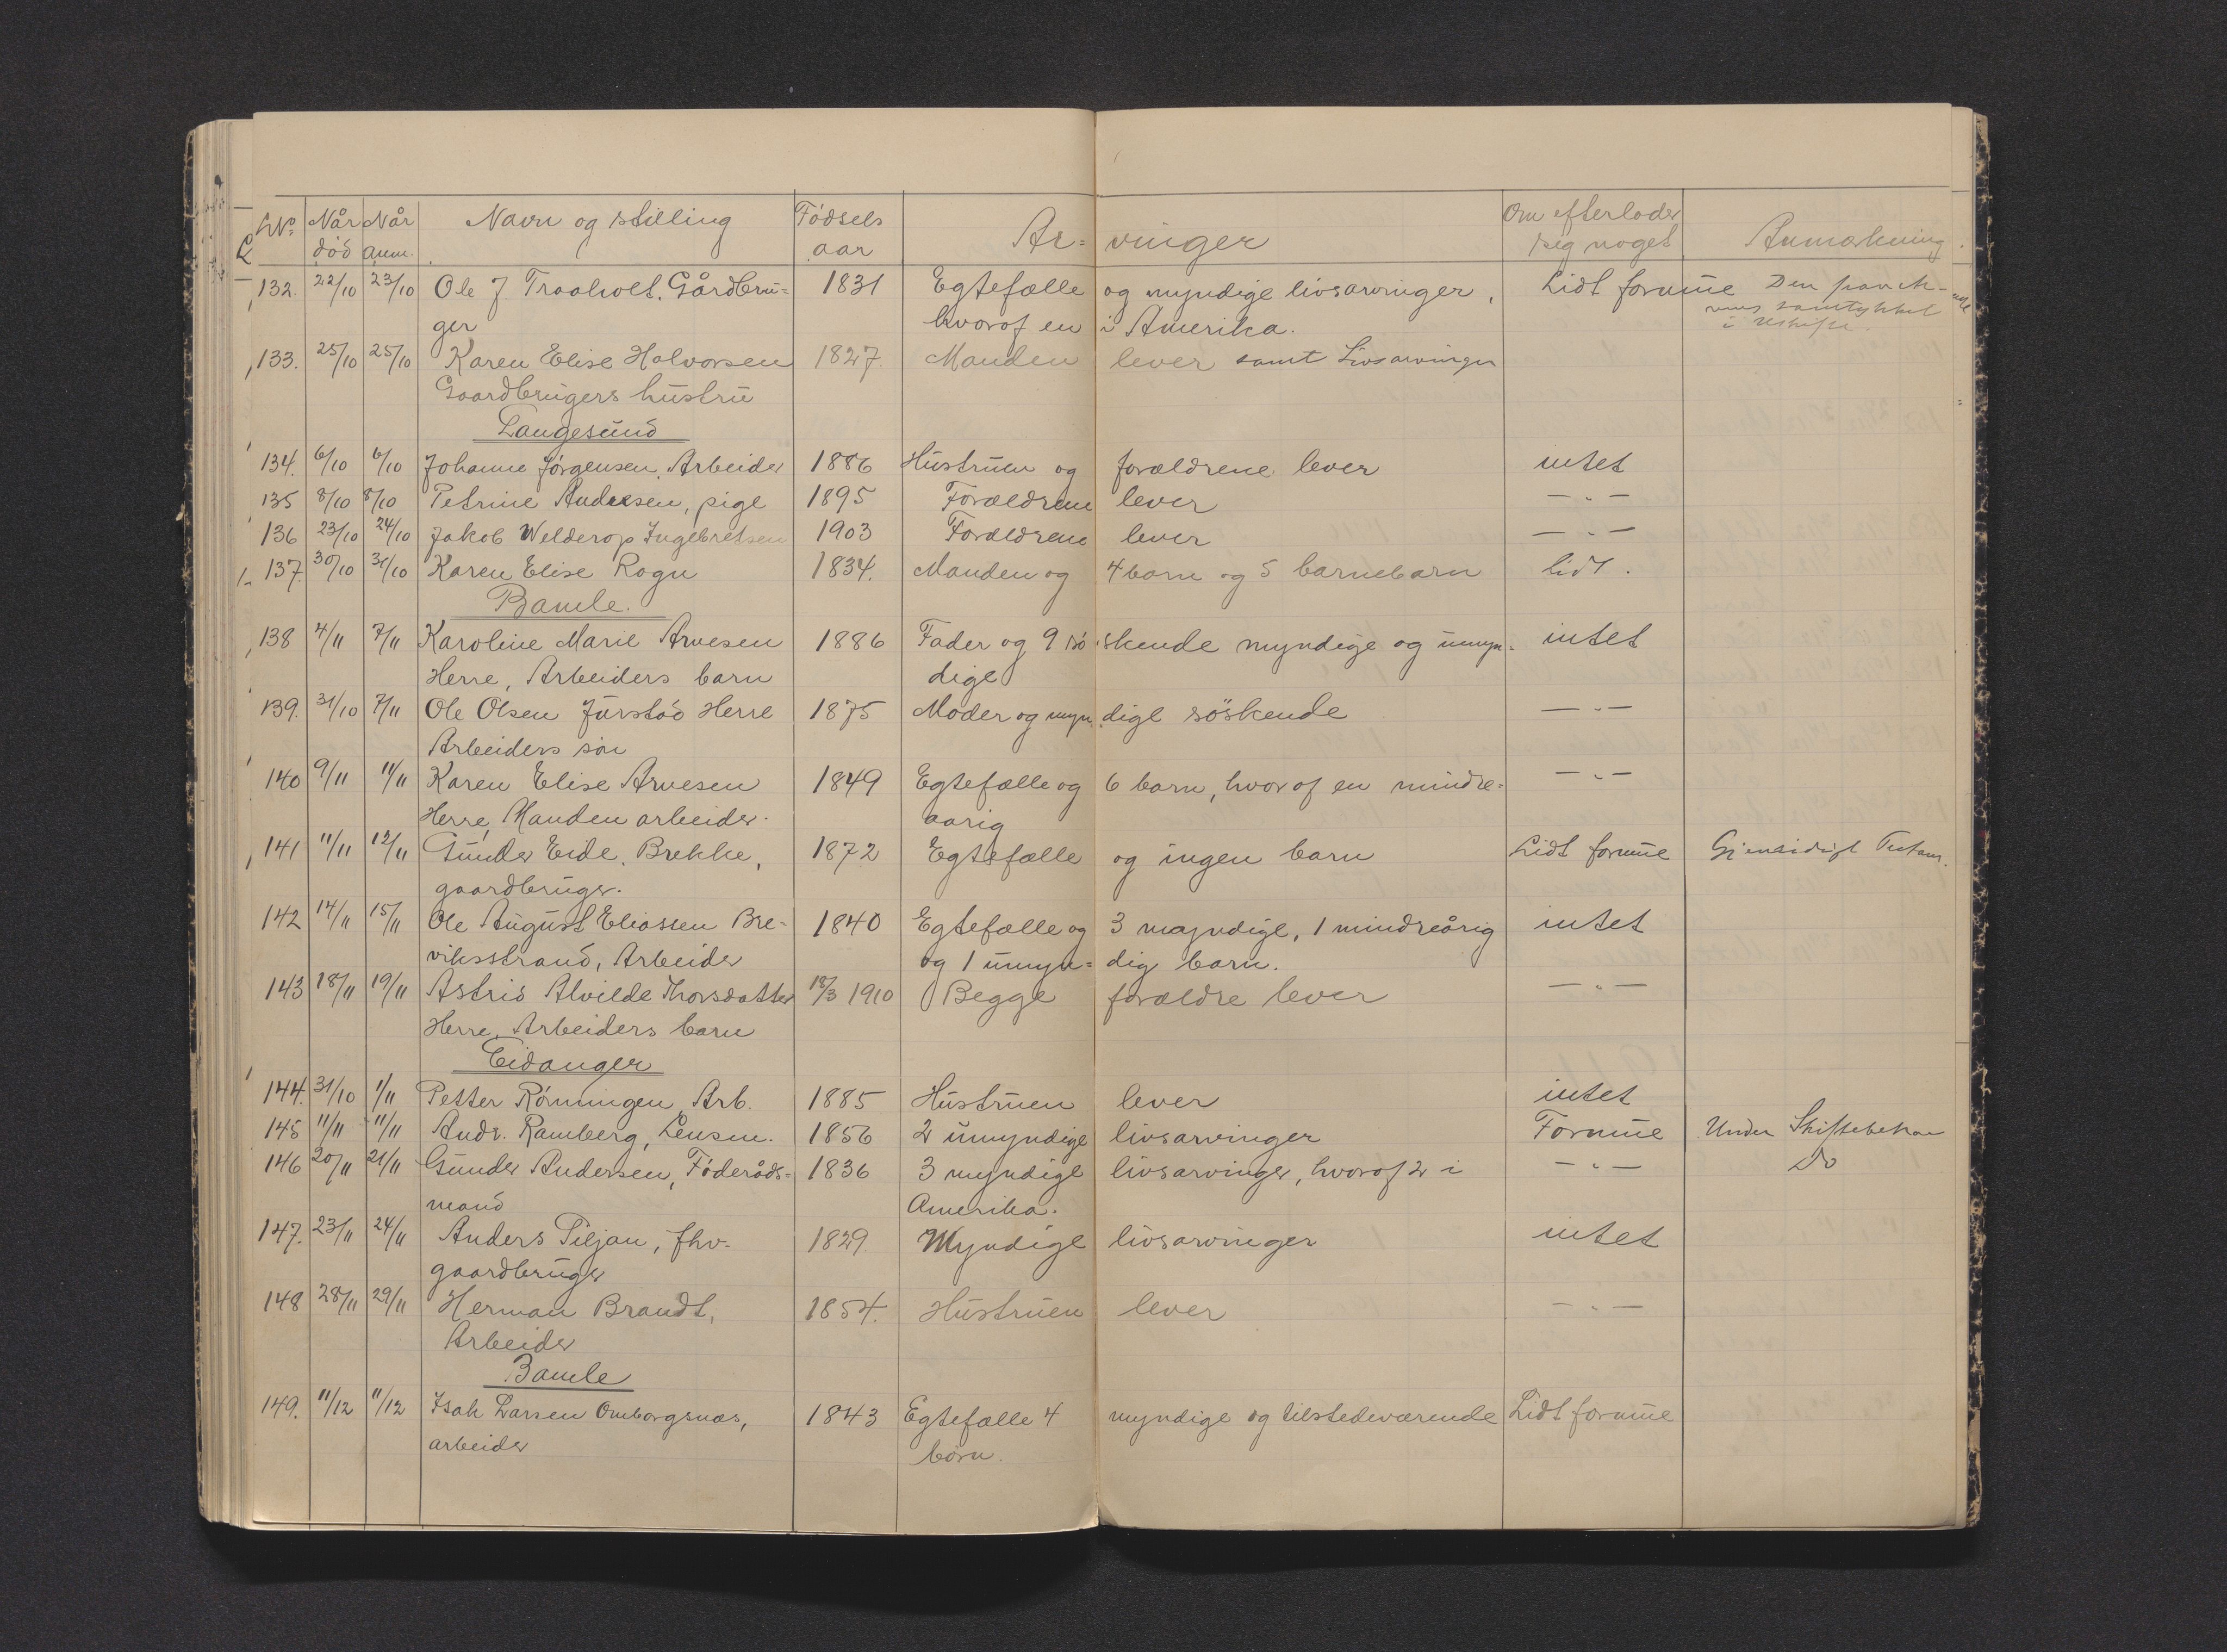 No. Når død Når anm. Navn og stilling Fødsels aar Ar= vinger Om efterlader seg noget Anmærkning
132. 22/10 23/10 Ole J. Traaholt, Gårdbru= 1831 Egtefælle og myndige livsarvinger, Lidt formue Den
ger hvoraf en i Amerika. samtykket
133. 25/10 25/10 Karen Elise Halvorsen 1827. Manden lever samt Livsarvinger
Gaardbrugers hustru
Langesund
134. 6/10 6/10 Johanne Jørgensen, Arbeider 1886 Hustruen og forældrene lever intet
135 8/10 8/10 Petrine Andersen, pige 1895 Forældrene lever — " —
136 23/10 24/10 Jakob Welderop Ingebretsen 1903 Forældrene lever — " —
137. 30/10 31/10 Karen Elise Rogn 1834. Manden og 4 barn og 5 barnebarn lidt.
Bamle.
138 4/11 7/11 Karoline Marie Arvesen 1886 Fader og 9 sø= skende myndige og umyn= intet
Herre, Arbeiders barn dige
139. 31/10 7/11 Ole Olsen Jurstad Herre 1875 Moder og myn= dige söskende — " —
Arbeiders søn
140 9/11 11/11 Karen Elise Arvesen 1849 Egtefælle og 6 barn, hvoraf en mindre= — " —
Herre, Manden arbeider. aarig
141 11/11 12/11 Gunder Eide, Brekke, 1872 Egtefælle og ingen barn Lidt formue Gjensidigt Testam.
gaardbruger.
142 14/11 15/11 Ole August Eliassen Bre= 1840 Egtefælle og 3 myndige, 1 mindreårig intet
viksstrand, Arbeider og 1 umyn= dig barn.
143 18/11 19/11 Astrid Alvilde Thorsdatter 18/3 1910 Begge forældre lever — " —
Herre, Arbeiders barn
Eidanger
144. 31/10 1/11 Petter Rønningen, Arb. 1885 Hustruen lever intet
145 11/11 11/11 Andr. Ramberg, Lensm. 1856 2 umyndige livsarvinger Formue Under Skiftebehan
146 20/11 21/11 Gunder Andersen, Føderåds= 1836 3 myndige livsarvinger, hvoraf 2 i — " — Do
mand Amerika.
147. 23/11 24/11 Anders Tiljan, fhv. 1829 Myndige livsarvinger intet
gaardbruger
148 28/11 29/11 Herman Brandt, 1854. Hustruen lever — " —
Arbeider
Bamle
149. 11/12 11/12 Isak Larsen Omborgsnæs, 1843 Egtefælle 4 myndige og tilstedeværende Lidt formue
arbeider børn.